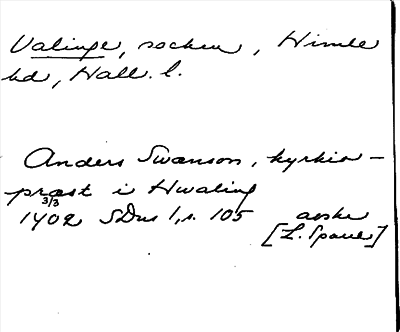 Valinge, socken, Himle
hd, Hall. l.
Anders Swanson, kyrkio-
præst i Hwaling
3/3
1402 SDns 1, s. 105 avskr
[L. Sparre]